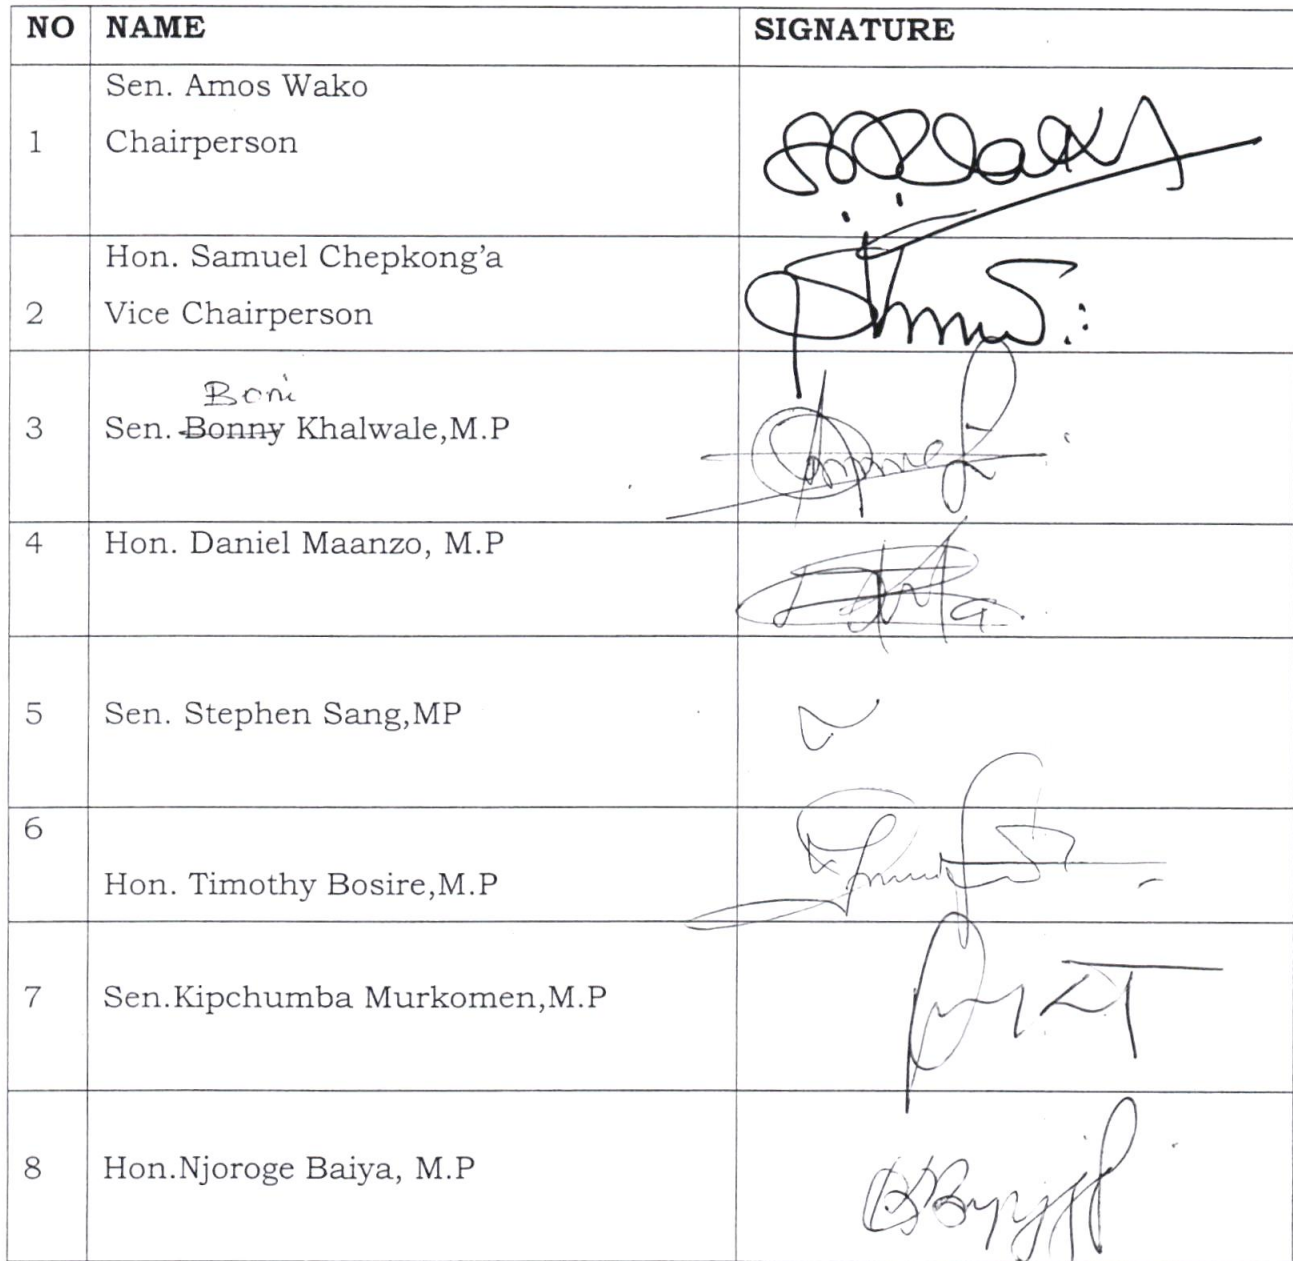 NO NAME SIGNATURE
Sen. Amos Wako
1 Chairperson
Hon. Samuel Chepkong'a
2 Vice Chairperson
Boni
3 Sen. Bonny Khalwale,M.P
4 Hon. Daniel Maanzo, M.P
5 Sen. Stephen Sang,MP
6
Hon. Timothy Bosire,M.P
7 Sen.Kipchumba Murkomen,M.P
8 Hon.Njoroge Baiya, M.P